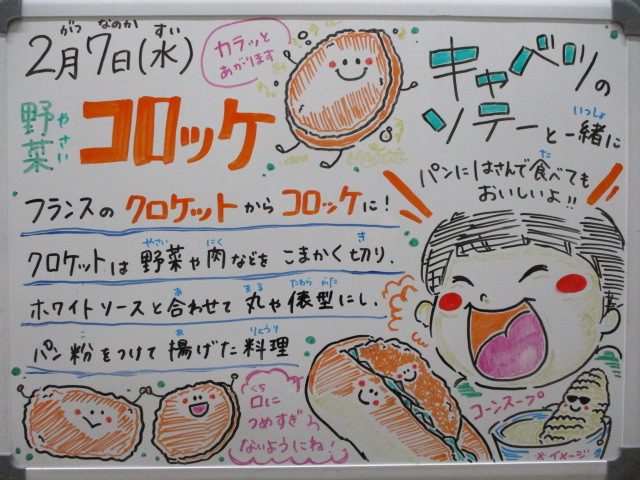 2月7日(水)
がつ なのか すい
カラッと
あがります
野菜コロッケ
やさい
キャベツの
ソテーと一緒に
いっしょ
パンにはさんで食べても
た
おいしいよ!!
フランスのクロケットからコロッケに!
クロケットは野菜や肉などをこまかく切り、
やさい にく き
ホワイトソースと合わせて丸や俵型にし、
あ まる たわら がた
パン粉をつけて揚げた料理
こ あ りょうり
口に
くち
つめすぎ
ないようにね!
コーンスープ
※イメージ